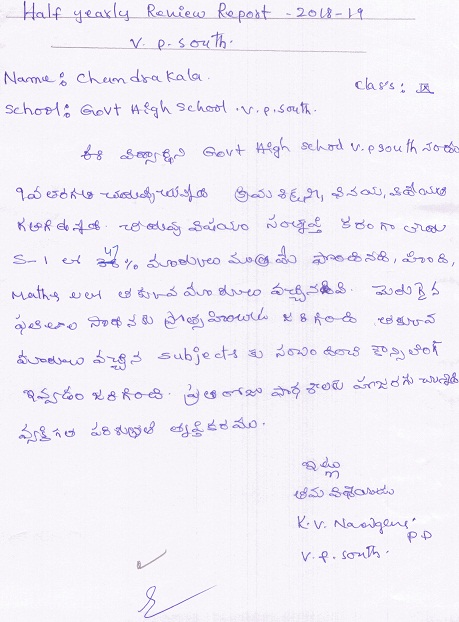 Half yearly Review Report - 2018-19
V. P. South.
Name: Chandrakala.
Class: IX
School: Govt High School. V.P. South.
ఈ విద్యార్థిని Govt High School V.P South నందు
9వ తరగతి చదువుచున్నది క్రమశిక్షణ, వినయ, విధేయత
కలిగి ఉన్నది. చదువు విషయం సంతృప్తి కరంగా లేదు
S-1 లో 47 % మార్కులు మాత్రమే పొందినది, హిందీ,
Maths లలో తక్కువ మార్కులు వచ్చినవి. మెరుగైన
ఫలితాల సాధనకు ప్రోత్సహించడం జరిగింది తక్కువ
మార్కులు వచ్చిన Subjects కు సంబంధించి కౌన్సిలింగ్
ఇవ్వడం జరిగింది. ప్రతి రోజు పాఠశాలకు హాజరగు చున్నది
వ్యక్తిగత పరిశుభ్రత తృప్తికరము.
ఇట్లు
తమ విధేయుడు
K. V.
P.D
V. P. South.